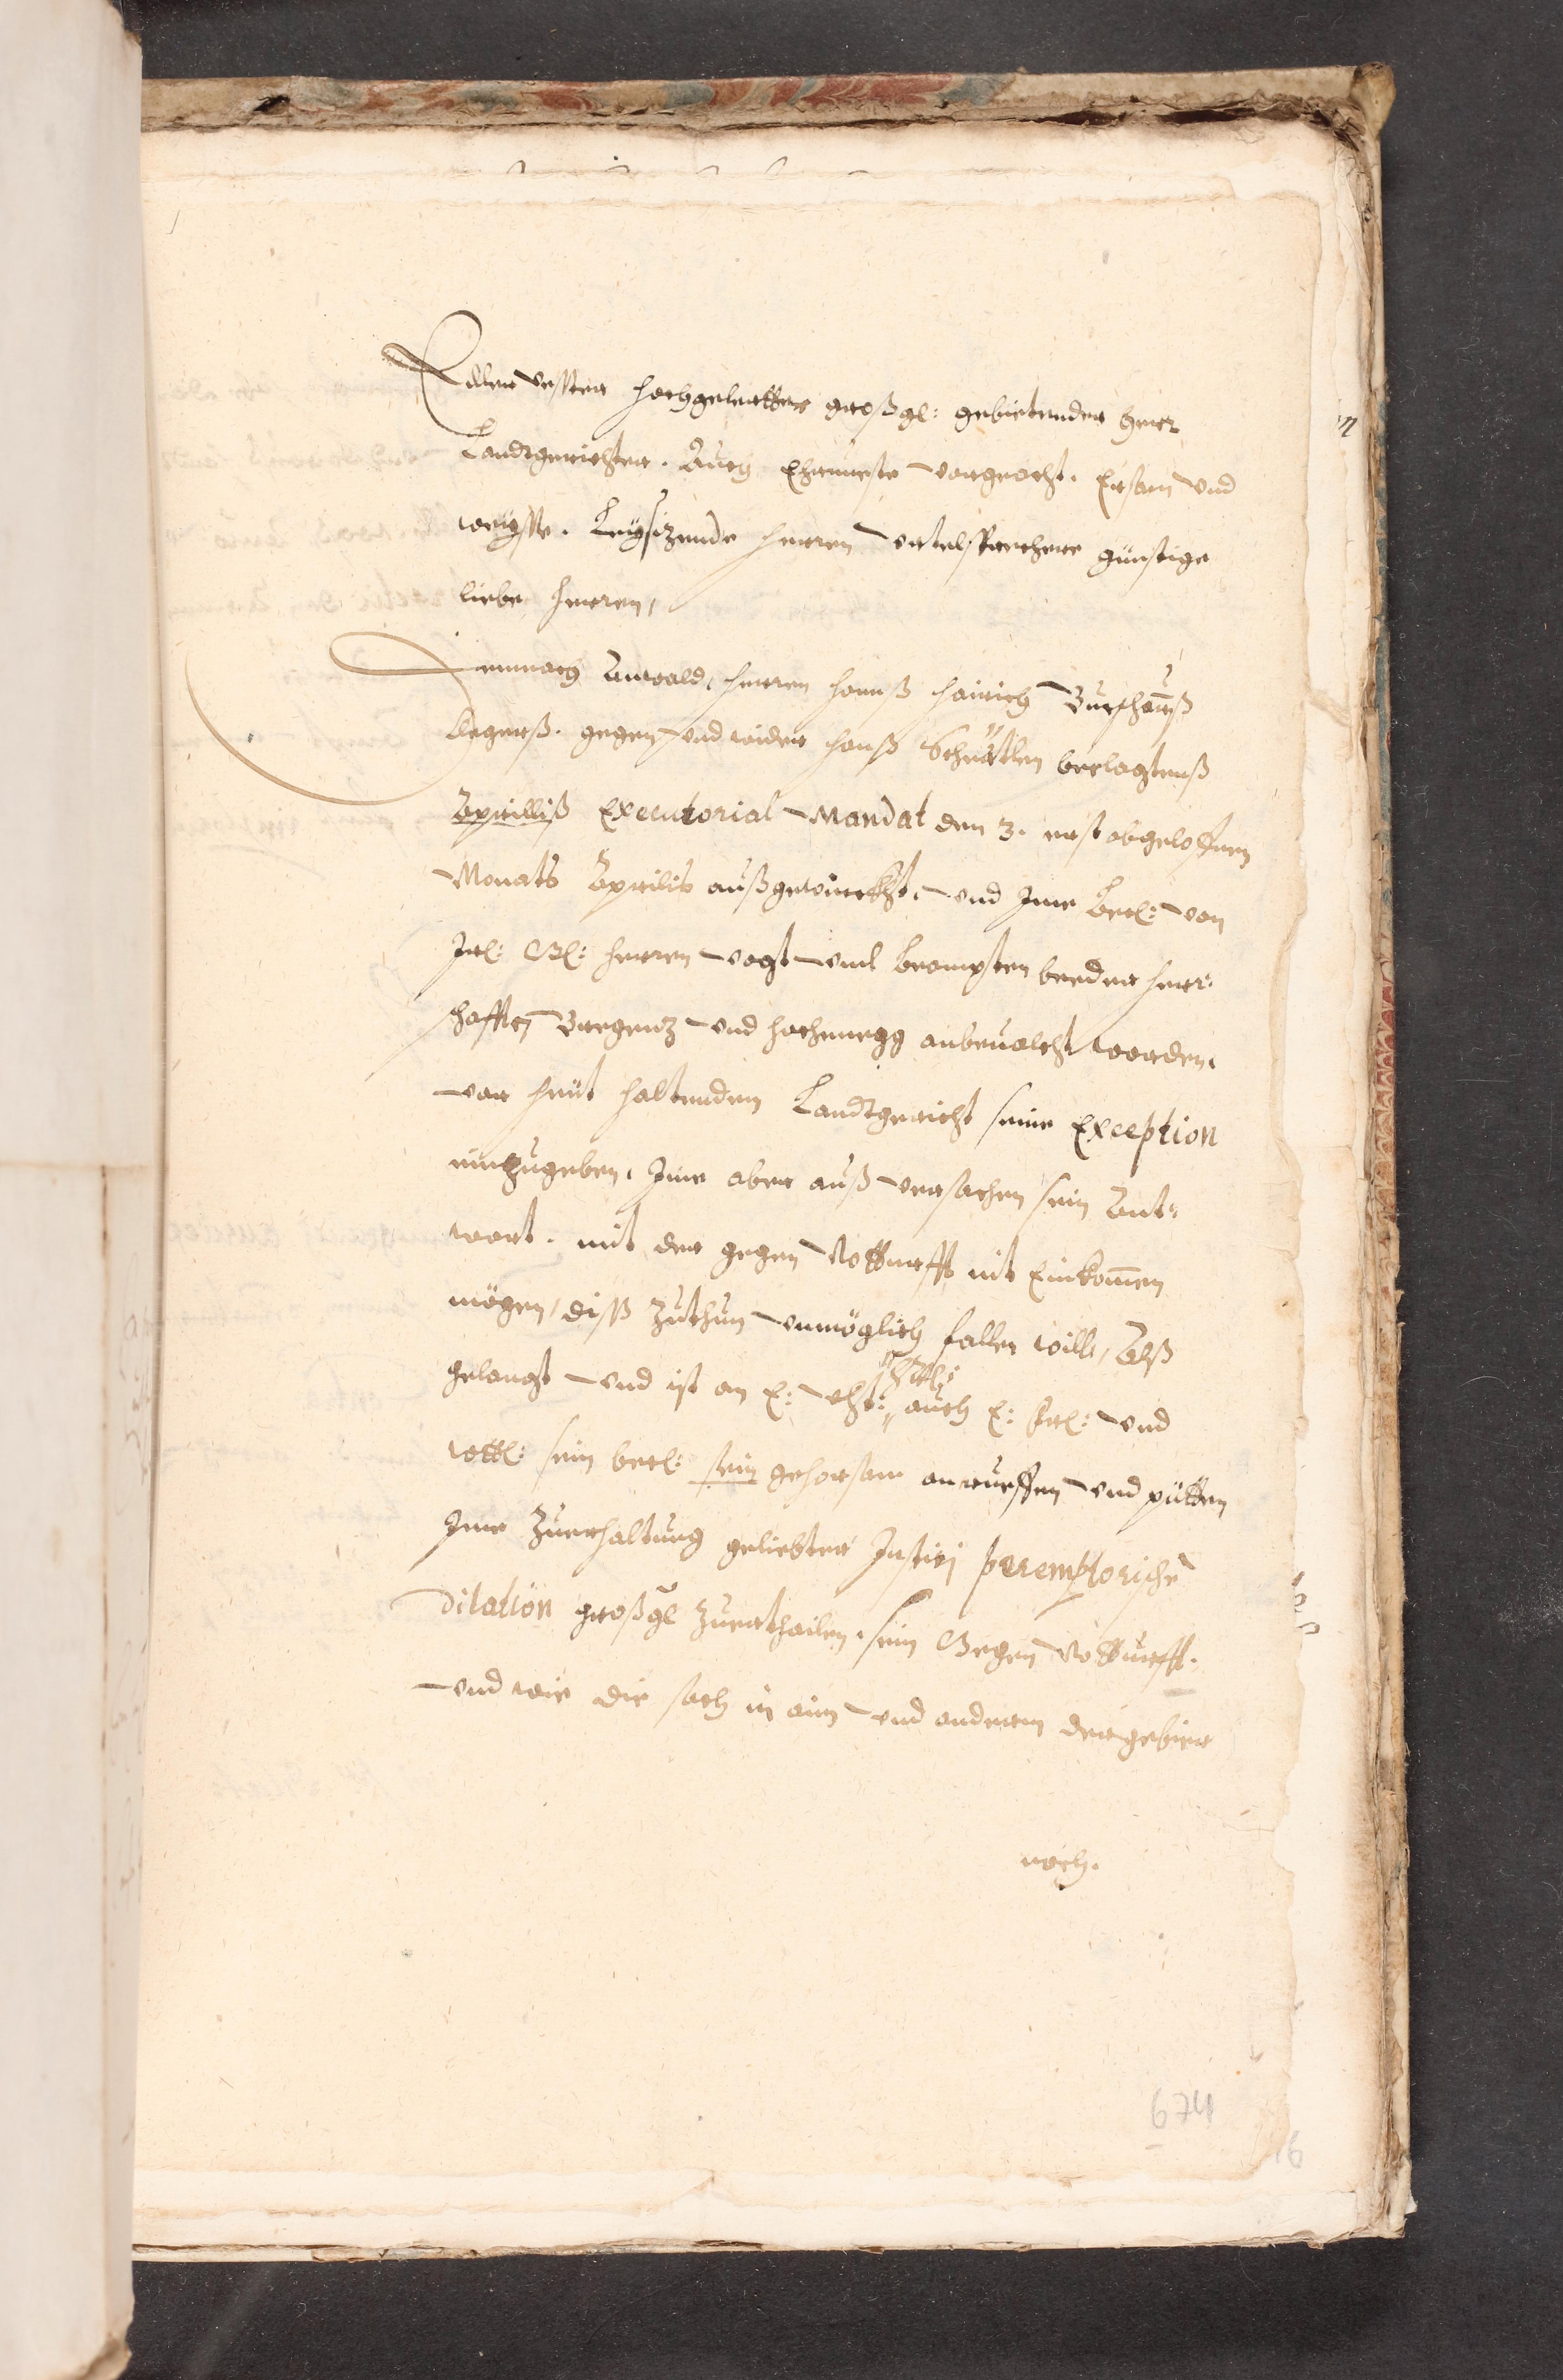 Edler vesster hochgelertter großgl: gebietender Herr
Landtgerichter. Auch Ehrnueste vorgeacht. Ersam und
weysse. Beysizende Herren vrtelsprechere günstige
liebe Herren,
Demnach Anwald, Herren Hannß Hainrich
Clegerß. gegen und wider Hanß beclagtenß
Aprilliß Executorial Mandat den 3. erst abgeloffnen
Monats Aprilis außgewürckht, und Ime Becl: von
Irl: Gl: Herren vogt und beampten beeder Herr:
schafften Bregenz und Hochenegg anbeuolcht worden,
vor heut haltendem Landtgericht seine Exception
einzugeben, Ime aber auß vrsachen sein Ant:
wort. mit der gegen Notturfft nit Einkomen
mögen, diss zuthun unmöglich fallen will, Alß
gelangt und ist an E: auch E: und
sein becl: sein gehorsam anrueffen und pütten
Ime zuerhaltung geliebter Justici peremptorische
Dilation großgl zuerthailen. sein Gegen Notturfft.
und wie die sach in ain und anderem der gebier
nach.
674